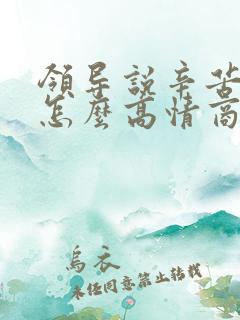 領导說辛苦
怎麼高情商
烏衣
未经同意禁止转载